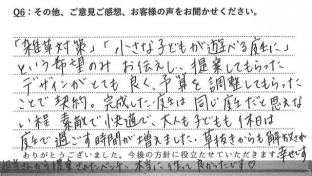 Q6：その他、ご意見ご感想、お客様の声をお聞かせください。
「雑草対策」「小さな子どもが遊べる庭に」
という希望のみお伝えし、提案してもらった
デザインがとても良く、予算を調整してもらった
ことで契約。完成した庭は同じ庭だと思えな
い程素敵で快適で、大人も子どもも休日は
庭で過ごす時間が増えました。草抜きからも解放され
ありがとうございました。今後の方針に役立たせていただきます。幸せです
担当さんから提案されたベンチ、本当に作って良かったです♡